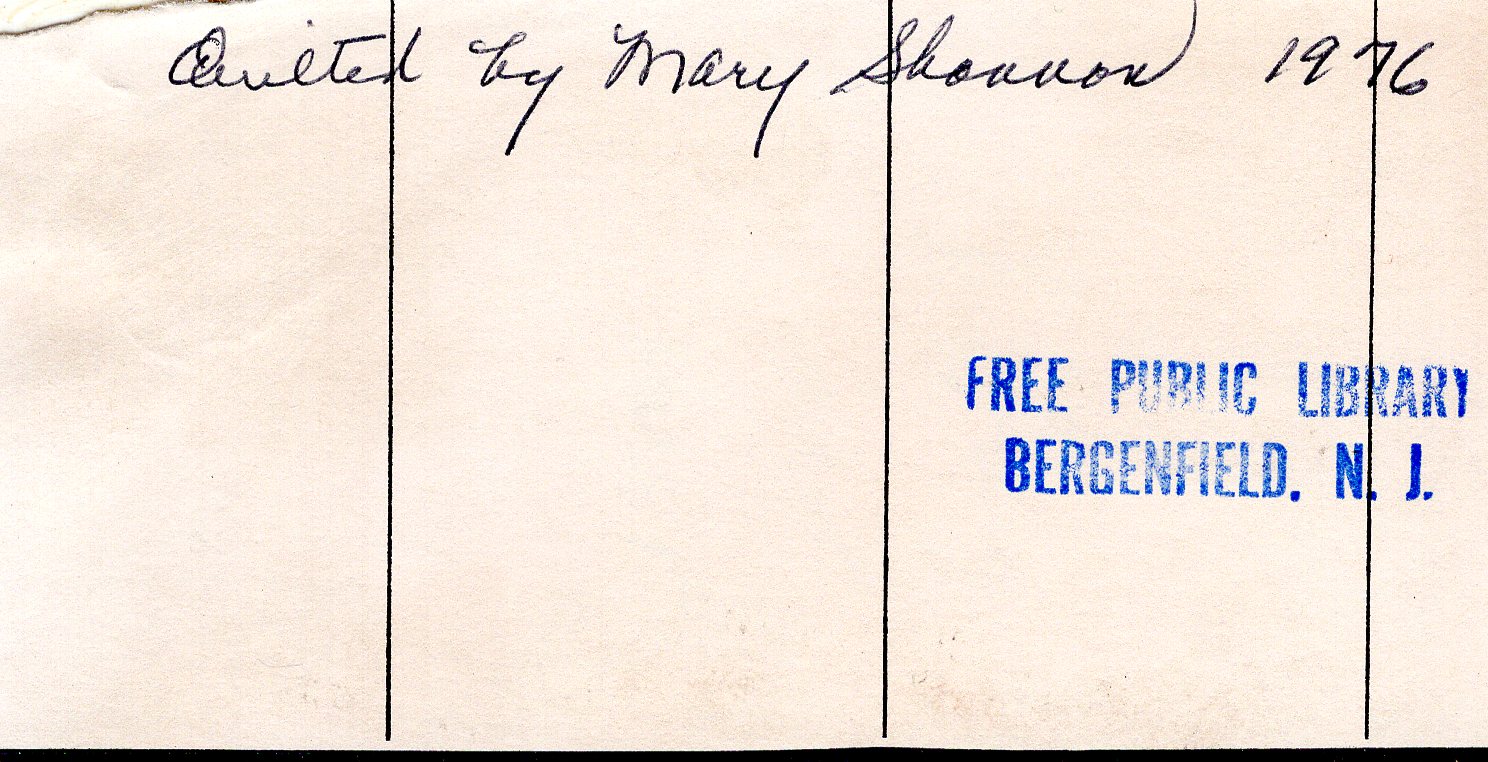 Quilted by Mary Shannon 1976
FREE PUBLIC LIBRARY
BERGENFIELD. N. J.